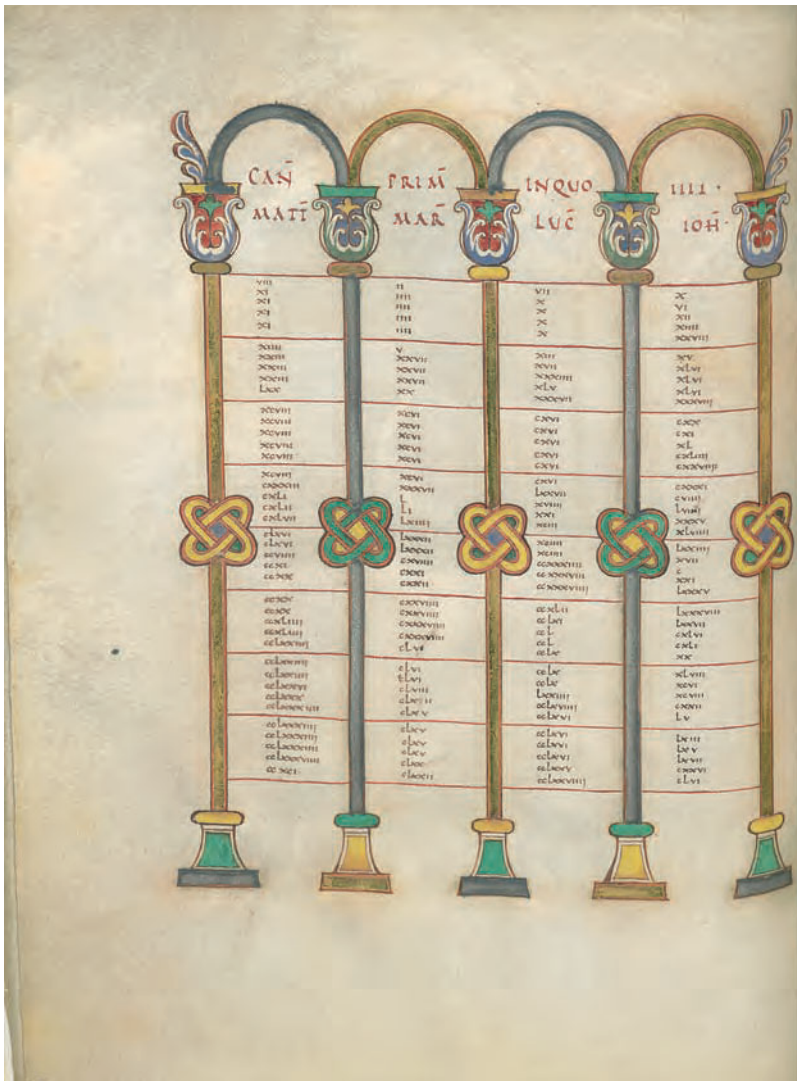 CAN̄ PRIM̄ IN QUO IIII ·
MATT̄ MAR̄ LUC̄ IOH̄ ·
viii ii vii x
xi iiii x vi
xi iiii x xii
xi iiii x xiiii
xi iiii x xxviii
xiiii v xiii xv
xxiii xxvii xvii xlvi
xxiii xxvii xxxiiii xlvi
xxiii xxvii xlv xlvi
lxx xx xxxvii xxxviii
xcviii xcvi cxvi cxx
xcviii xcvi cxvi cxi
xcviii xcvi cxvi xl
xcviii xcvi cxvi cxliiii
xcviii xcvi cxvi cxxviiii
xcviii xcvi cxvi cxxxi
cxxxiii xxxvii lxxvii cviiii
cxli l xviiii lviiii
cxlii li xxi xxxv
cxlvii lxiiii xciii xlviiii
clxvi lxxxii xciiii
clxvi lxxxii xciiii xvii
ccviiii cxviiii ccxxxiiii c
ccxi cxxi ccxxxviii xxi
ccxx cxxii ccxxxviiii lxxxv
ccxx cxxviiii ccxlii lxxxviii
ccxx cxxviiii cclxi lxxvii
ccxliiii cxxxviiii ccl cxlvi
ccxliiii cxxxviiii ccl cxli
cclxxiiii clvi cclx xx
cclxxiiii clvi cclx xlviii
cclxxiiii clvi cclx xcvi
cclxxvi clviii lxxiiii xcviii
cclxxx clxii cclxviiii cxxii
cclxxxiiii clxv cclxvi lv
cclxxxiiii clxv cclxvi lxiii
cclxxxiiii clxv cclxvi lxv
cclxxxiiii clxv cclxvi lxvii
cclxxxviiii clxx cclxxv cxxvi
ccxci clxxii cclxxviiii clvi